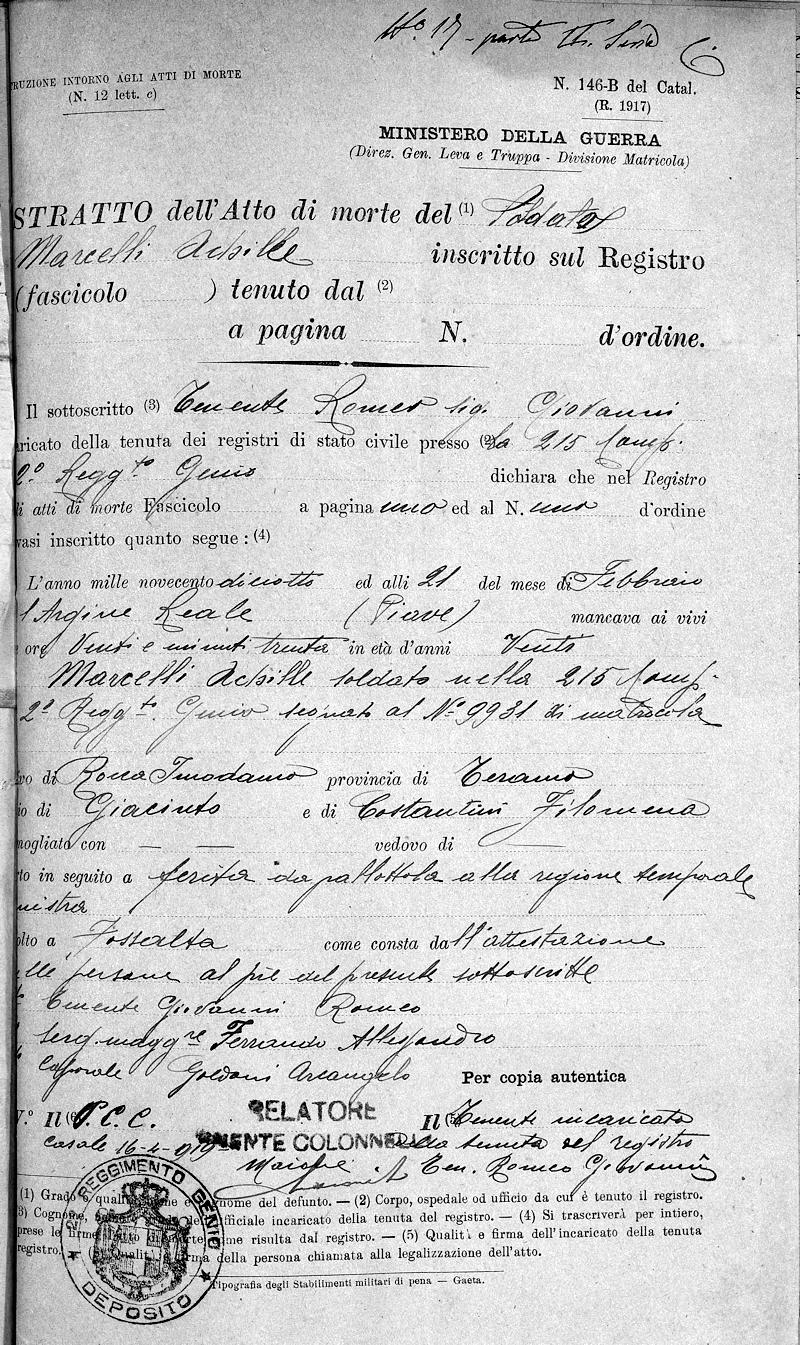 N° 17 parte IIª Serie C
RUZIONE INTORNO AGLI ATTI DI MORTE
(N. 12 lett. c)
N. 146-B del Catal.
(R. 1917)
MINISTERO DELLA GUERRA
(Direz. Gen. Leva e Truppa - Divisione Matricola)
STRATTO dell'Atto di morte del (1) Soldato
Marcelli Achille inscritto sul Registro
(fascicolo ) tenuto dal (2)
a pagina N. d'ordine.
Il sottoscritto (3) Tenente Romeo sig. Giovanni
aricato della tenuta dei registri di stato civile presso (2) la 215 Comp.
2º Reggto Genio dichiara che nel Registro
li atti di morte Fascicolo a pagina uno ed al N. uno d'ordine
vasi inscritto quanto segue : (4)
L'anno mille novecento diciotto ed alli 21 del mese di Febbraio
l'Argine Reale (Piave) mancava ai vivi
e ore Venti e minuti trenta in età d'anni Venti
Marcelli Achille soldato nella 215 Comp.
2º Reggto. Genio segnato al Nº 9931 di matricola
vo di Rocca Imodamo provincia di Teramo
io di Giacinto e di Costantini Filomena
mogliato con — — vedovo di —
to in seguito a ferita da pallottola alla regione temporale
nistra
olto a Fossalta come consta dall'attestazione
elle persone al piè del presente sottoscritte
Tenente Giovanni Romeo
serg. maggre Ferrando Allessandro
Caporale Goldoni Arcangelo Per copia autentica
V.º Il (6) P.C.C. RELATORE Il (5) Tenente incaricato
Casale 16-4-919 TENENTE COLONNELLO della tenuta del registro
Ten. Romeo Giovanni
(1) Grado e qualità nome e nome del defunto. — (2) Corpo, ospedale od ufficio da cui è tenuto il registro.
3) Cognome, ufficiale incaricato della tenuta del registro. — (4) Si trascriverà per intiero,
prese le firme l'atto di morte come risulta dal registro. — (5) Qualità e firma dell'incaricato della tenuta
registro. — (6) Qualità e firma della persona chiamata alla legalizzazione dell'atto.
Tipografia degli Stabilimenti militari di pena — Gaeta.
2º REGGIMENTO GENIO
★ DEPOSITO ★